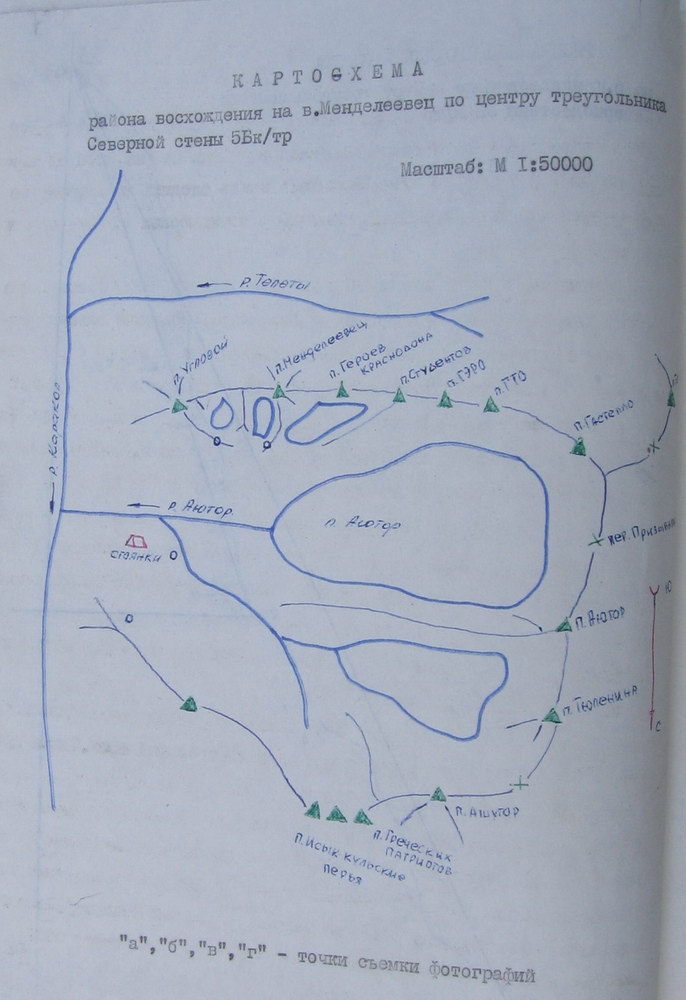 КАРТОСХЕМА
района восхождения на в.Менделеевец по центру треугольника
Северной стены 5Бк/тр
Масштаб: М I:50000
р. Телеты
п. Угловой
п. Менделеевец
п. Героев
Краснодона
п. Студентов
п. ГЭРО
п. ГТО
п. Гастелло
р. Каракол
р. Аютор
л. Аютор
стоянки
пер.
п. Аютор
Ю
С
п. Тюленина
п. Ашутор
п. Греческих
патриотов
п. Исык кульские
перья
"а","б","в","г" - точки съемки фотографий